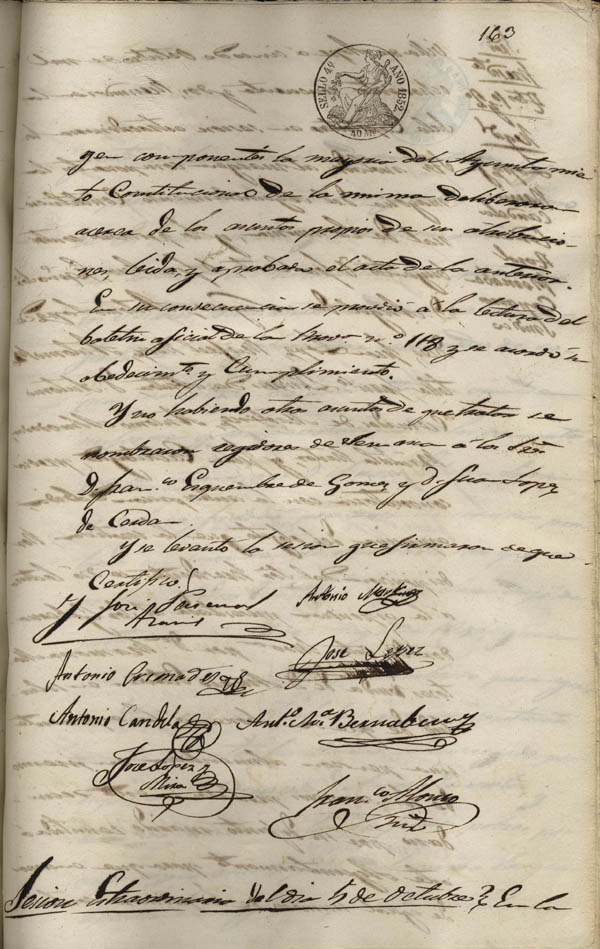 163
SELLO 4º AÑO 1852.
40 MRS
gen componentes la mayoria del Ayuntamien
to Constitucional de la misma deliberaron
acerca de los asuntos propios de su atribucio
nes, leida, y aprobada el acta de la anterior.
En su consecuencia se procedió á la lectura del
boletin oficial de la Prova n.º 118 y se acordó su
obedecimto y Cumplimiento.
Y no habiendo otros asuntos de que tratar se
nombraron regidores de Semana á los Sres
D. Franco Esquembre de Gomez y D. Juan Lopez
de Cerdan
Y se levantó la sesion que firmaron de que
Certifico
José Pascual
Antonio Martinez
José Lopez
Antonio Cremades
Antonio Candela
Anto Ma Bernabeu
Jose Lopez y
Mira
Franco Alonso
Sesion Estraordinaria del dia 5 de Octubre En la